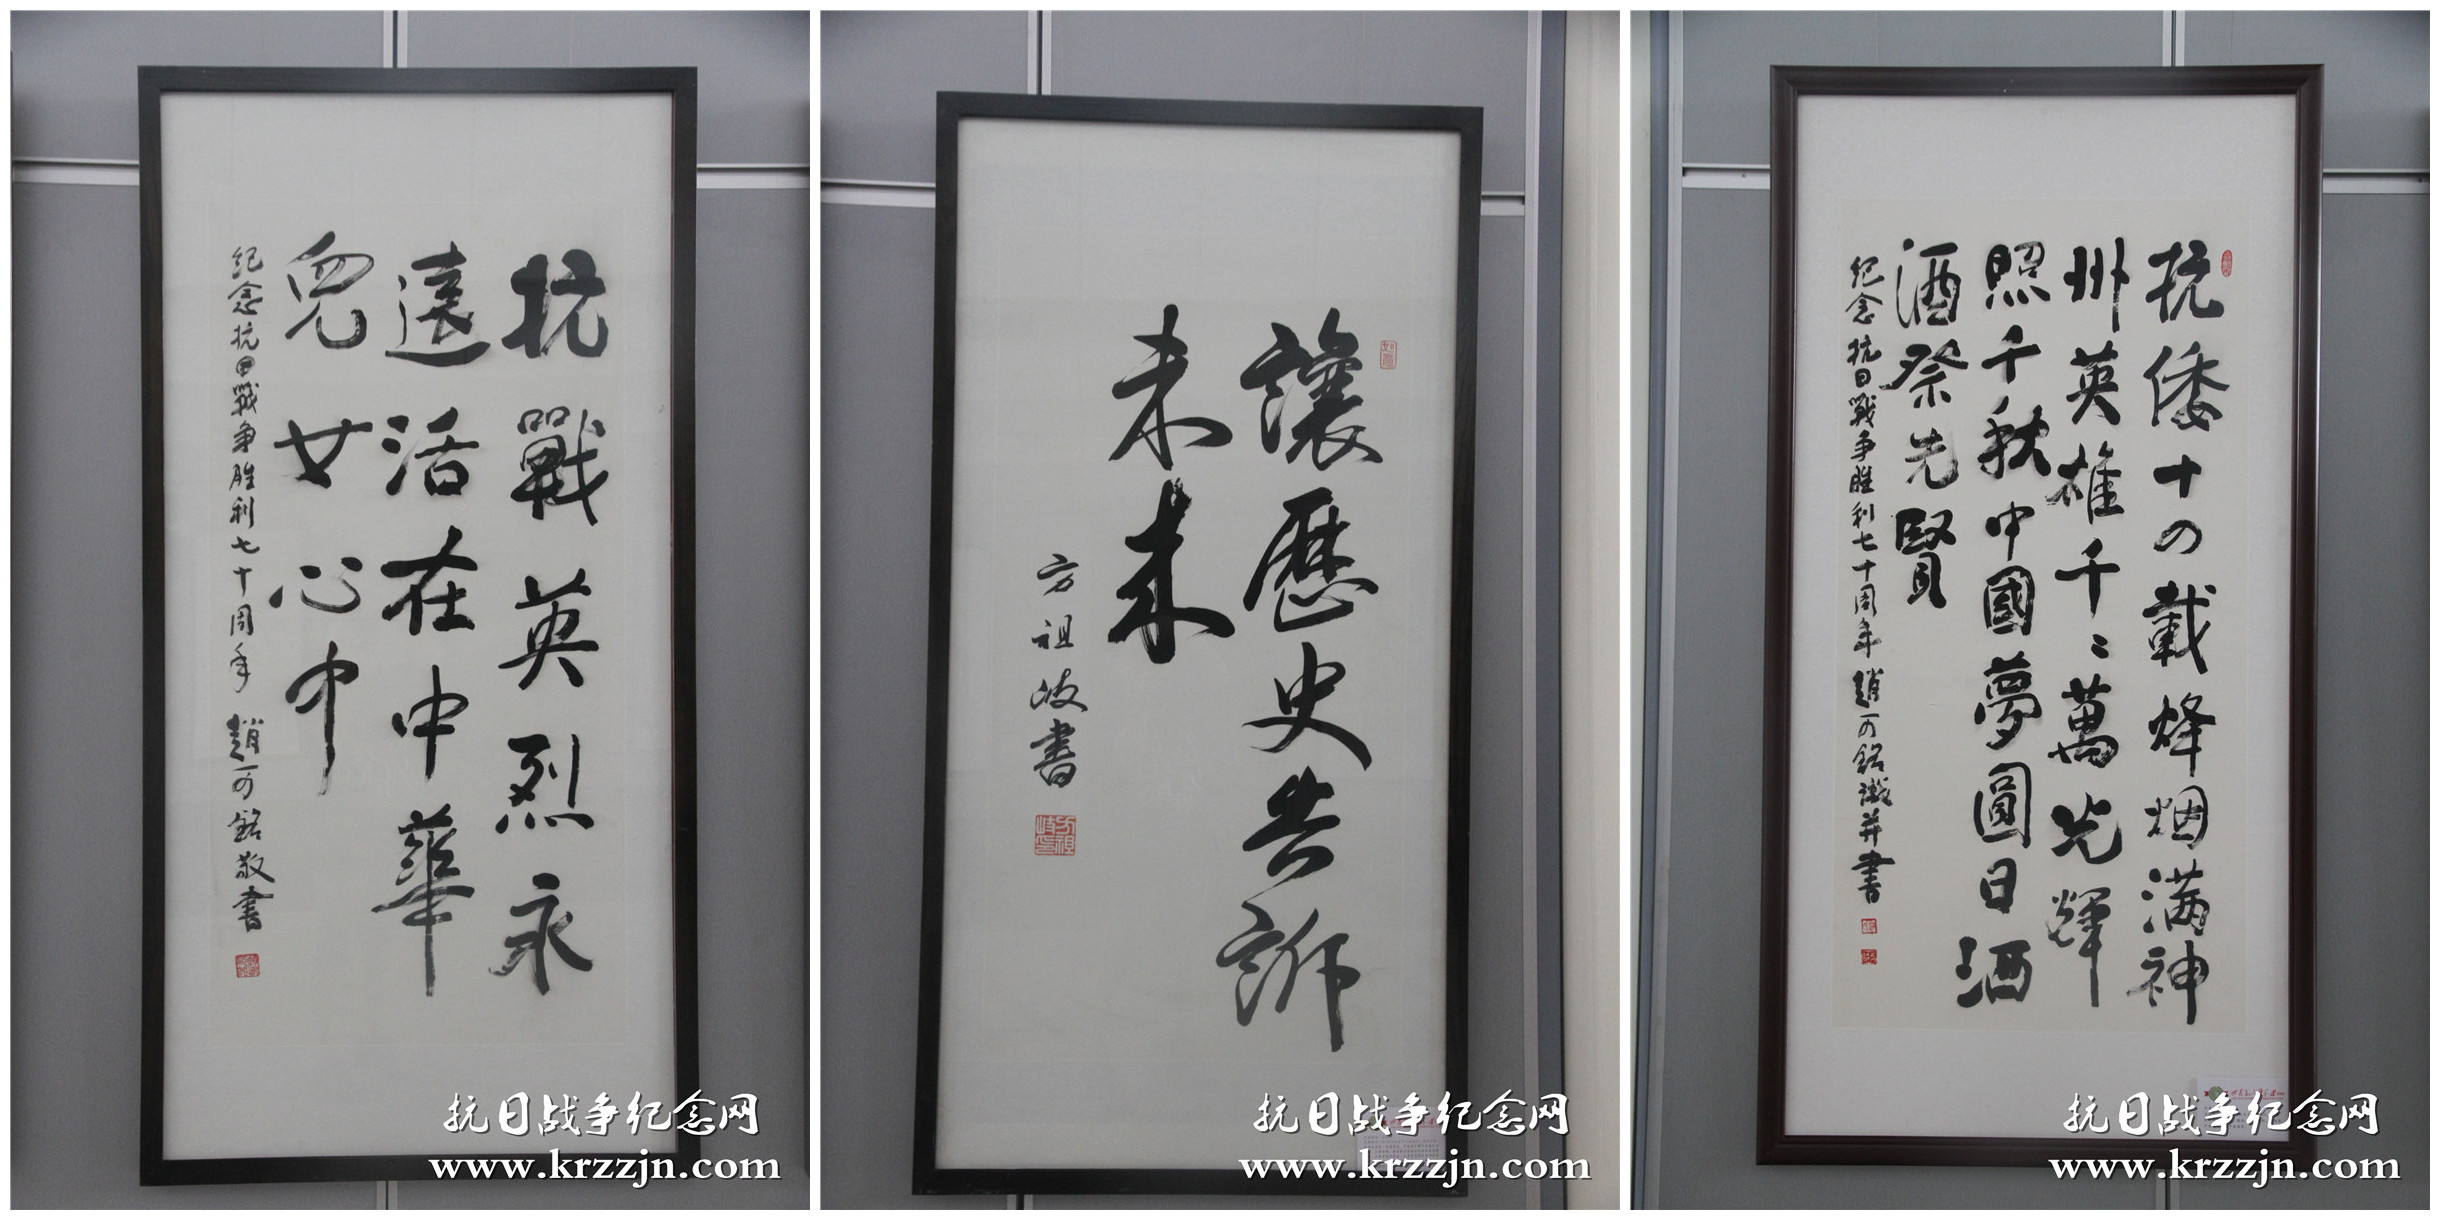 抗戰英烈永
遠活在中華
兒女心中
纪念抗日戰争胜利七十周年 趙一可銘敬書
抗日战争纪念网
www.krzzjn.com
讓歷史告訴
未来
方祖岐書
抗日战争纪念网
www.krzzjn.com
抗倭十四載烽烟满神
州英雄千千萬光輝
照千秋中國夢圓日洒
酒祭先賢
纪念抗日戰争胜利七十周年 趙可銘識并書
抗日战争纪念网
www.krzzjn.com